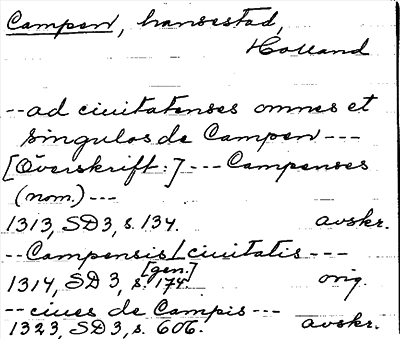 Campen, hansestad,
Holland
--ad ciuitatenses omnes et
singulos de Campen---
[Överskrift:]---Campenses
(nom.)---
1313, SD3, s. 134. avskr.
--Campensis/ciuitatis---
[gen.]
1314, SD3, s. 174. orig.
--ciues de Campis---
1323, SD3, s. 606. avskr.